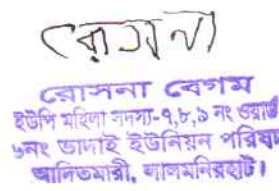 রোসনা
রোসনা বেগম
ইউপি মহিলা সদস্য-৭,৮,৯ নং ওয়ার্ড
৬নং ভাদাই ইউনিয়ন পরিষদ
আদিতমারী, লালমনিরহাট।